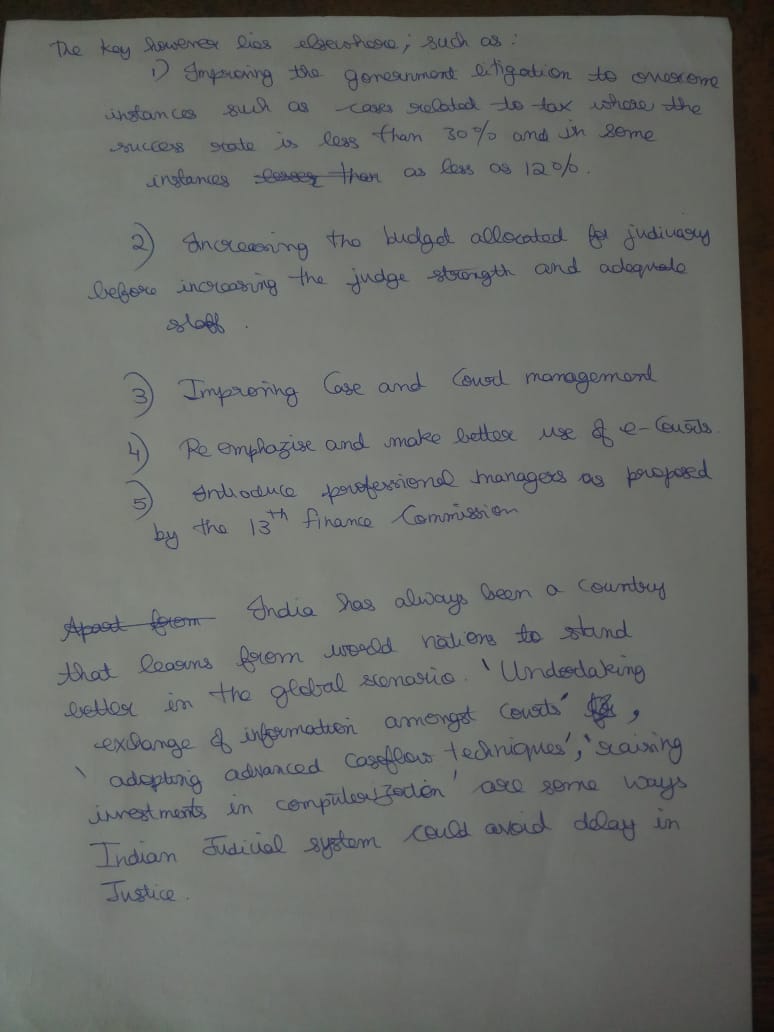 The key however lies elsewhere, such as:
1) Improving the government litigation to overcome
instances such as cases related to tax where the
success rate is less than 30% and in some
instances lesser than as less as 12%.
2) Increasing the budget allocated for judiciary
before increasing the judge strength and adequate
staff.
3) Improving Case and Court management
4) Re emphazise and make better use of e-Courts.
5) Introduce professional managers as proposed
by the 13th finance Commission
Apart from India has always been a country
that learns from world nations to stand
better in the global scenario. 'Undertaking
exchange of information amongst courts',
'adopting advanced caseflow techniques', 'raising
investments in computerization' are some ways
Indian Judicial system could avoid delay in
Justice.